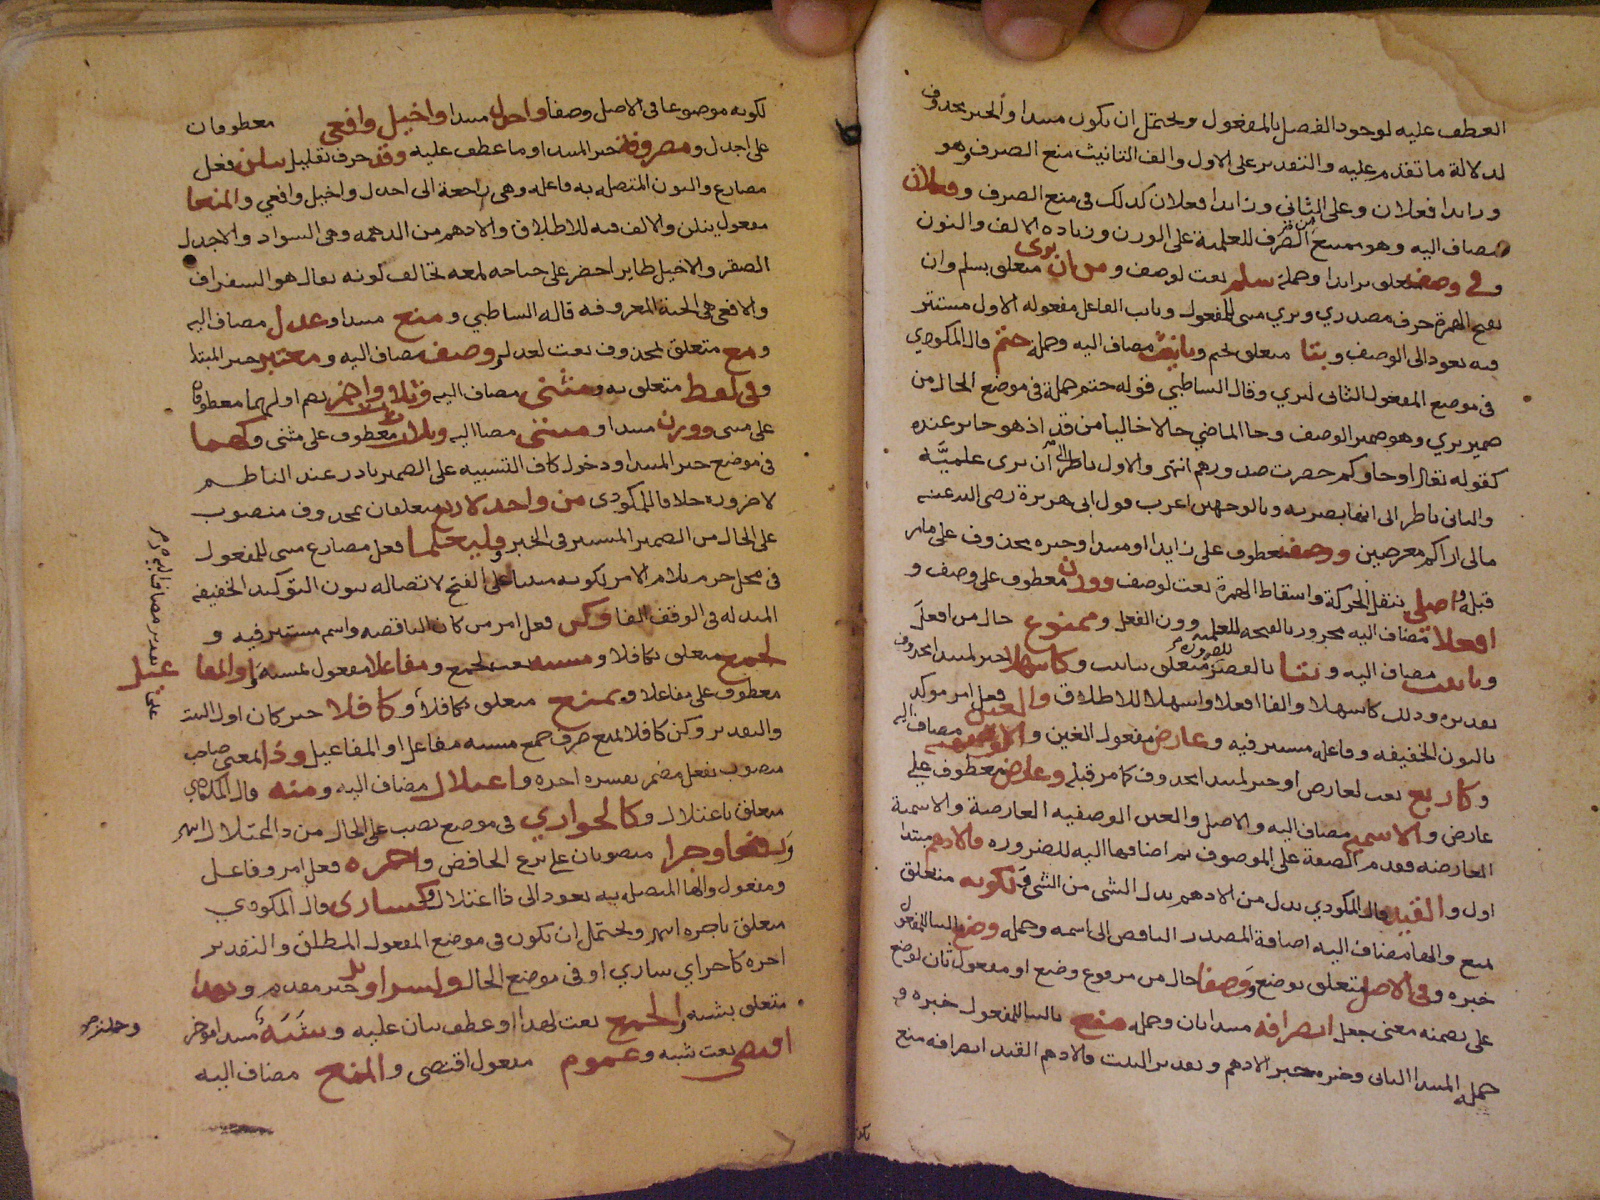 العطف عليه لوجود الفصل بالمفعول ويحتمل ان يكون مبتدا والخبر محذوف
لدلالة ما تقدم عليه والتقدير على الاول والف التانيث منع الصرف وهو
وزايدا فعلان وعلى الثاني وزايدا فعلان كذلك في منع الصرف وفعلان
مضاف اليه وهو ممنوع من الصرف للعلمية على الوزن وزيادة الالف والنون
وفي وصف متعلق بزايدا وجملة سلم نعت لوصف ومن ان يرى متعلق بسلم وان
بفتح الهمزة حرف مصدري ويري مبني للمفعول ونايب الفاعل مفعوله الاول مستتر
فيه يعود الى الوصف وبتا متعلق بختم وتانيث مضاف اليه وجملة ختم قال المكودي
في موضع المفعول الثاني ليري وقال الشاطبي قوله ختم جملة في موضع الحال من
ضمير يري وهو ضمير الوصف وجا الماضي حالا خاليا من قد اذ هو جايز عنده
كقوله تعالى او جاوكم حصرت صدورهم انتهى والاول ناظر الى ان يرى علمية
والثاني ناظر الى انها بصرية وبالوجهين اعرب قول ابي هريرة رضي الله عنه
مالي اراكم معرضين ووصف معطوف على زايدا او مبتدا وخبره محذوف على ما مر
قبله واصلي بنقل الحركة واسقاط الهمزة نعت لوصف ووزن معطوف على وصف و
افعلا مضاف اليه مجرور بالفتحة للعلمية ووزن الفعل وممنوع حال من افعل
وتانيث مضاف اليه وبتا بالقصر للضرورة متعلق بتانيث وكاشهلا خبر لمبتدا محذوف
تقديره وذلك كاشهلا والفا افعلا واشهلا للاطلاق والغين فعل امر موكد
بالنون الخفيفة وفاعله مستتر فيه وعارض مفعول الغين والوصفيه مضاف اليه
وكاربع نعت لعارض او خبر لمبتدا محذوف كما مر قبله وعارض معطوف على
عارض والاسميه مضاف اليه والاصل والغين الوصفيه العارضة والاسمية
العارضه فقدم الصفة على الموصوف ثم اضافها اليه للضروره فالادهم مبتدا
اول والقيد قال المكودي بدل من الادهم بدل الشى من الشى ولكونه متعلق
بمنع والها مضاف اليه اضافة المصدر الناقص الى اسمه وجمله وضع بالبنا للمفعول
خبره وفي الاصل متعلق بوضع ووصفا حال من مرفوع وضع او مفعول ثان لوضع
على تضمنه معنى جعل انصرافه مبتدا ثان وجمله منع بالبنا للمفعول خبره و
جمله المبتدا الثاني وخبره خبر الادهم وتقدير البيت فالادهم القيد انصرافه منع
لكونه موضوعا في الاصل وصفا واجدل مبتدا واخيل وافعى معطوفان
على اجدل ومصروفة خبر المبتدا وما عطف عليه وقد حرف تقليل ينلن فعل
مضارع والنون المتصله به فاعله وهي راجعة الى اجدل واخيل وافعي والمنعا
مفعول ينلن والالف فيه للاطلاق والادهم من الدهمه وهى السواد والاجدل
الصقر والاخيل طاير اخضر على جناحه لمعة تخالف لونه يقال هو الشقراق
والافعى هى الحية المعروفة قاله الشاطبي ومنع مبتدا وعدل مضاف اليه
ومع متعلق بمحذوف نعت لعدل ووصف مضاف اليه ومعتبر خبر المبتدا
وفي لفظ متعلق به ومثنى مضاف اليه وثلاث واخر بضم اولهما معطوفان
على مثنى ووزن مبتدا ومثنى مضاف اليه وثلاث معطوف على مثنى وكهما
في موضع خبر المبتدا ودخول كاف التشبيه على الضمير نادر عند الناظم
لا ضروره خلافا للمكودي من واحد لاربع متعلقان بمحذوف منصوب
على الحال من الضمير المستتر في الخبر وليعلما فعل مضارع مبني للمفعول
في محل جزم بلام الامر لكونه مبنيا على الفتح لاتصاله بنون التوكيد الخفيفه
المبدله في الوقف الفا وكن فعل امر من كان الناقصه واسم مستتر فيه و
لجمع متعلق بكافلا ومشبه نعت لجمع ومفاعلا مفعول لمشبه او المفاعيل
معطوف على مفاعلا وبمنع متعلق بكافلا وكافلا خبر كان اول البيت
والتقدير وكن كافلا لمنع صرف جمع مشبه مفاعل او المفاعيل وذا المعنى صاحب
منصوب بفعل مضمر يفسره اجره واعتلال مضاف اليه ومنه قال المكودي
متعلق باعتلال وكالجواري في موضع نصب على الحال من ذا اعتلال اسم
ورفعا وجرا منصوبان على نزع الخافض واجره فعل امر وفاعل
ومفعول والها المتصل به يعود الى ذا اعتلال وكساري قال المكودي
متعلق باجره اسم ويحتمل ان يكون في موضع المفعول المطلق والتقدير
اجره كاجراي ساري او في موضع الحال ولسراويل خبر مقدم وبهذا
متعلق بشبه والجمع نعت لهذا او عطف بيان عليه وشبه مبتدا موخر
اقتضى نعت شبه وعموم مفعول اقتضى والمنع مضاف اليه